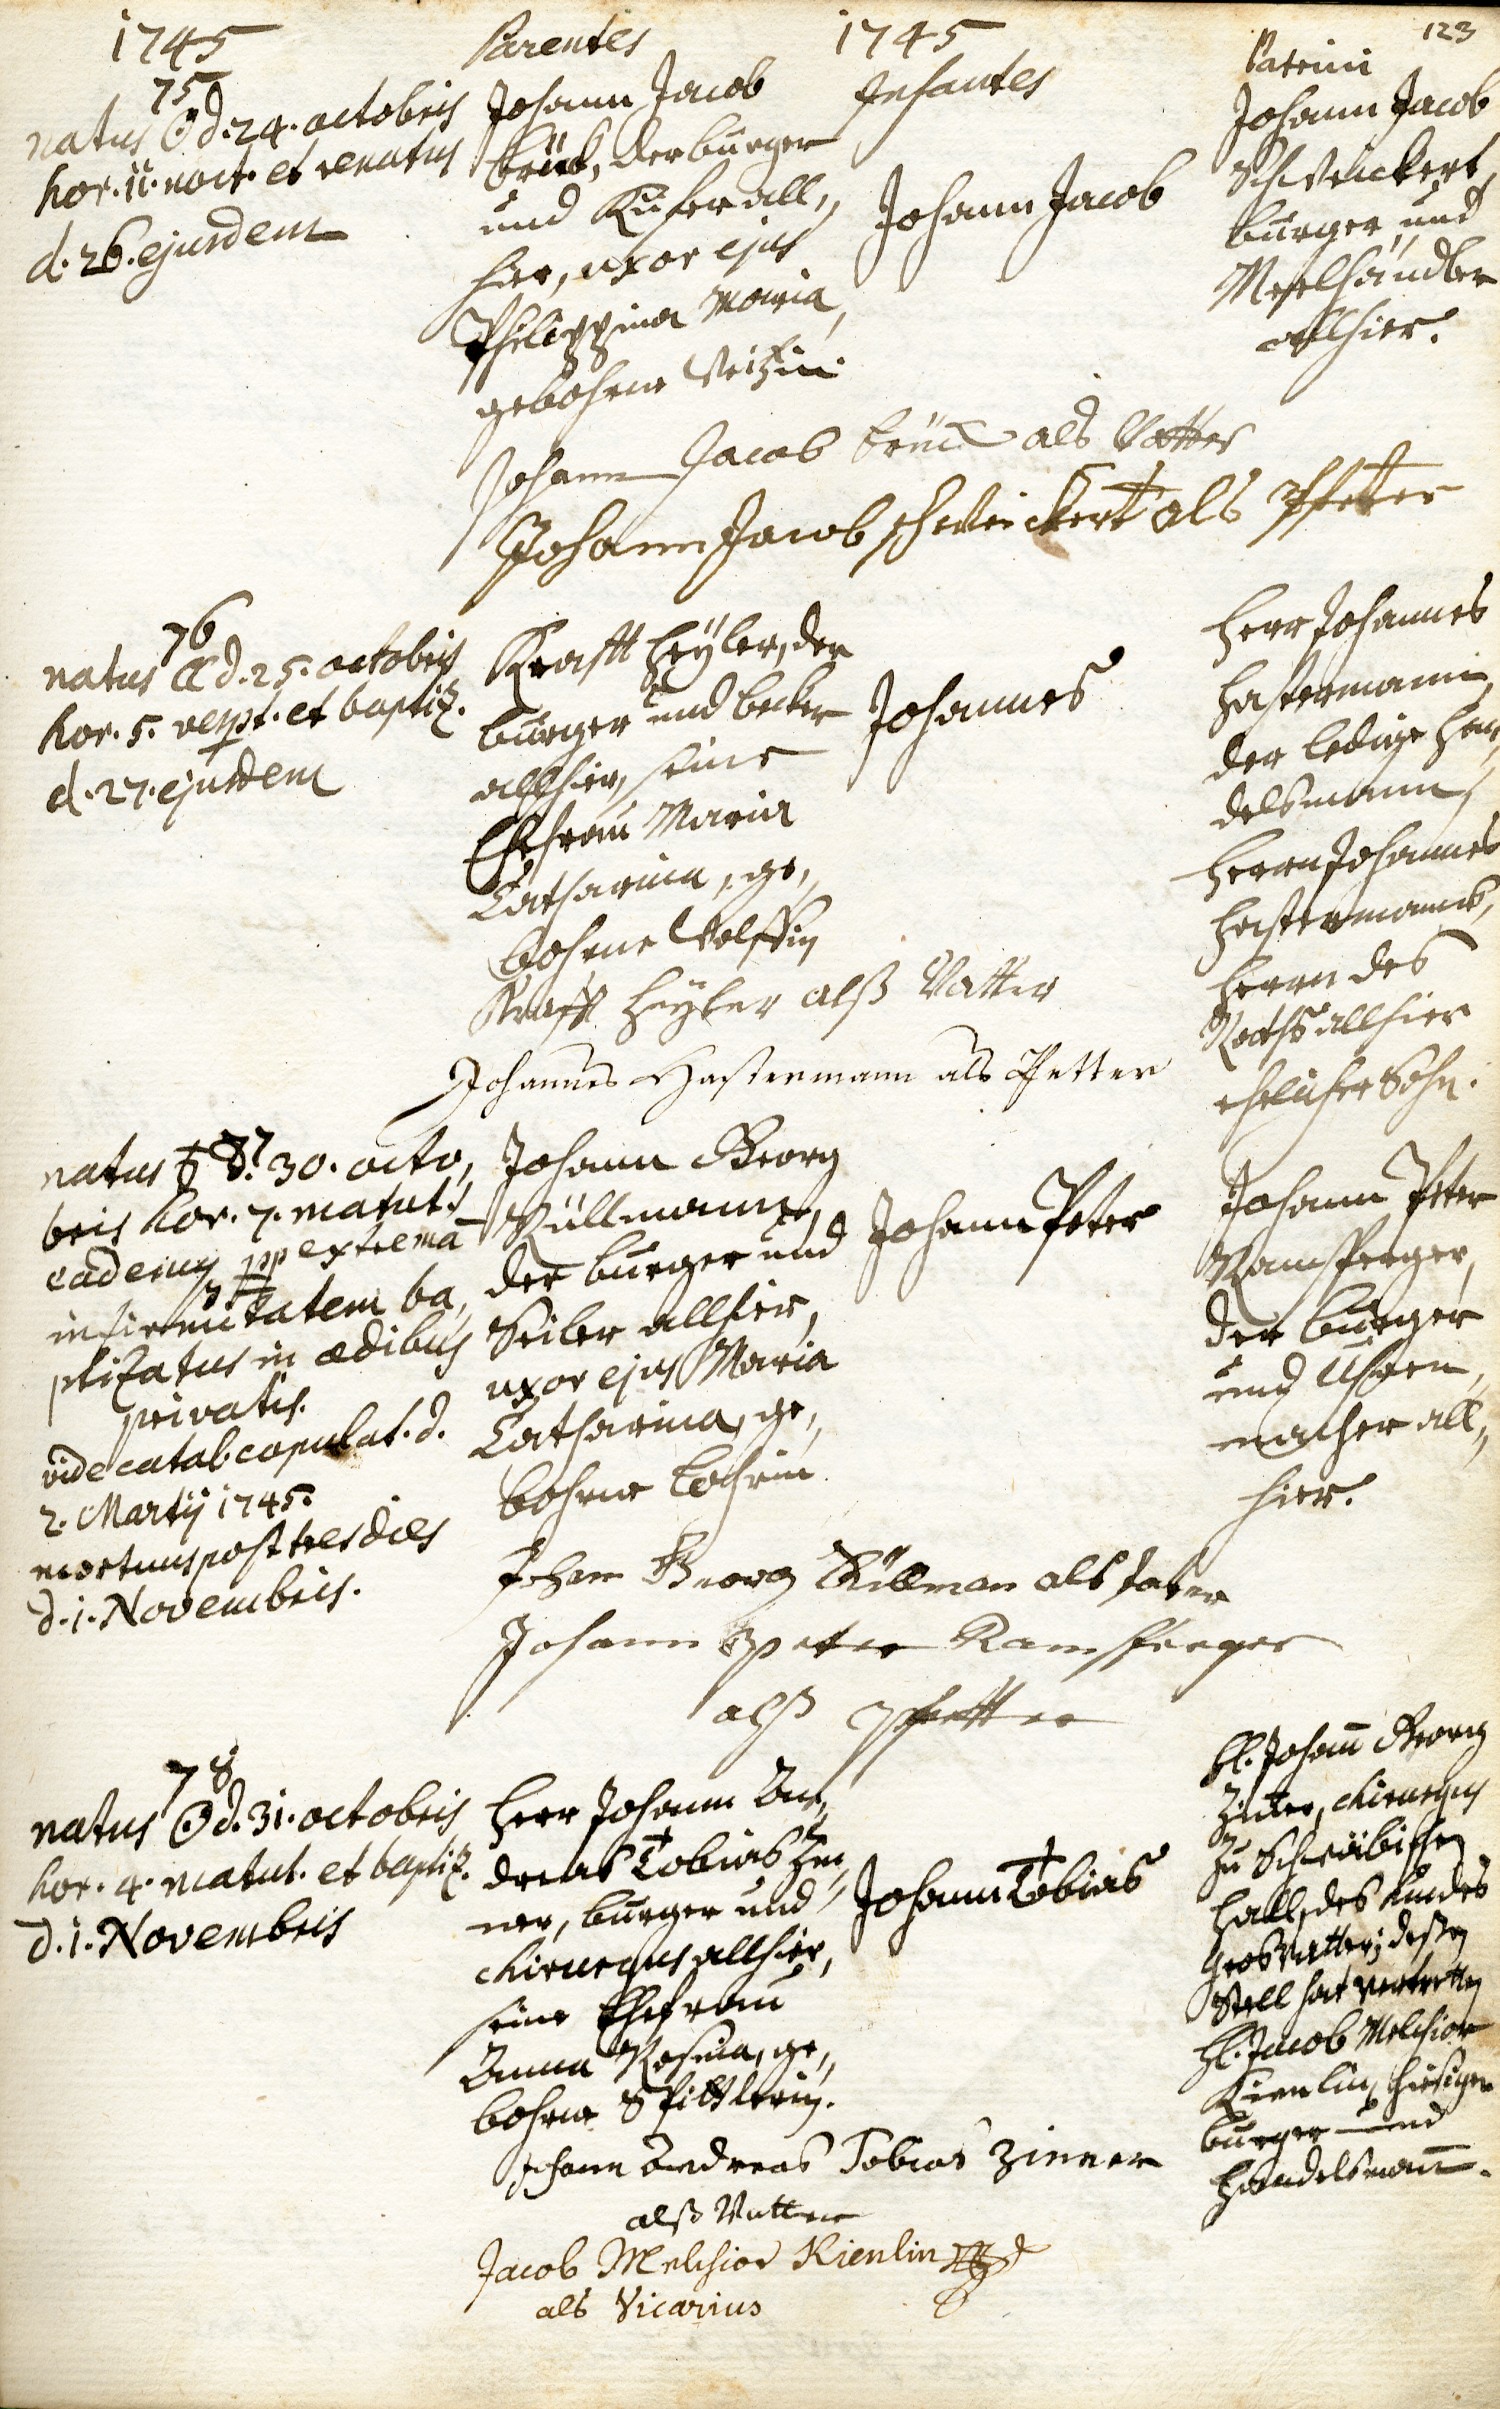 123
1745
Parentes
1745
Infantes
Patrini
75
natus ☉ d. 24. octobris
hor. 11. noct. et renatus
d. 26. ejusdem
Johann Jacob
Brück, der burger
und Kufer all„
hier, uxor ejus
Philippina Maria,
gebohrne Veitzin
Johann Jacob
Johann Jacob
Schweickert,
burger und
Meelhändler
allhier.
Johann Jacob Brück als Vatter
Johann Jacob schweickert als Pfetter
76
natus ☾ d. 25. octobris
hor. 5. vespt. et baptiz.
d. 27. ejusdem
Krafft Heyler, der
burger und becker
allhier, seine
Ehefrau Maria
Catharina, ge„
bohrne Wolffin
Johannes
Herr Johannes
Hastermann,
der ledige Han„
delsmann,
Herrn Johannes
Hastermanns,
Herrn des
Raths allhier
ehelicher Sohn.
Krafft Heyler alß Vatter
Johannes Hastermann als Pfetter
77
natus ♄ d. 30. octo„
bris hor. 7. matut.
eadem pp extremã
infirmitatem ba„
ptizatus in ædibus
privatis.
vide catal. copulat. d.
2. Martij 1745.
mortuus post tres dies
d. 1. Novembris.
Johann Georg
Rüllmann,
der burger und
Seiler allhier,
uxor ejus Maria
Catharina, ge„
bohrne
Johann Peter
Johann Peter
Ramsperger,
der burger
und Uhren„
macher all„
hier.
Johann Georg Rüllman als Vater
Johann Peter Ramsperger
alß Pfetter
78
natus ☉ d. 31. octobris
hor. 4. matut. et baptiz.
d. 1. Novembris
Herr Johann An„
dreas Tobias Zin„
ner, burger und
chirurgus allhier,
seine Ehefrau
Anna Rosina, ge„
bohrne Spittlerin.
Johann Tobias
H. Johañ Georg
Zinner, chirurgus
zu Schwäbischen
Hall, des Kindes
Grosvatter; deßen
Stell hat vertretten
H. Jacob Melchior
Kienlin, hiesiger
burger und
Handelsmañ.
Johann Andreas Tobias Zinner
alß Vatter
Jacob Melchior Kienlin
als Vicarius